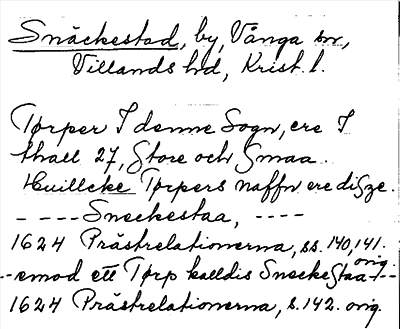 Snäckestad, by, Vånga sn,
Villands hd, Krist. l.
Tørper I denne Sogn, ere I
thall 27, Store och Smaa.
Huillcke Tørpers naffn ere diſze.
- - - - Sneckestaa, - - - -
1624 Prästrelationerna, ss. 140, 141. orig.
- - emod ett Tørp kalldis SneckeStaa - - -
1624 Prästrelationerna, s. 142. orig.